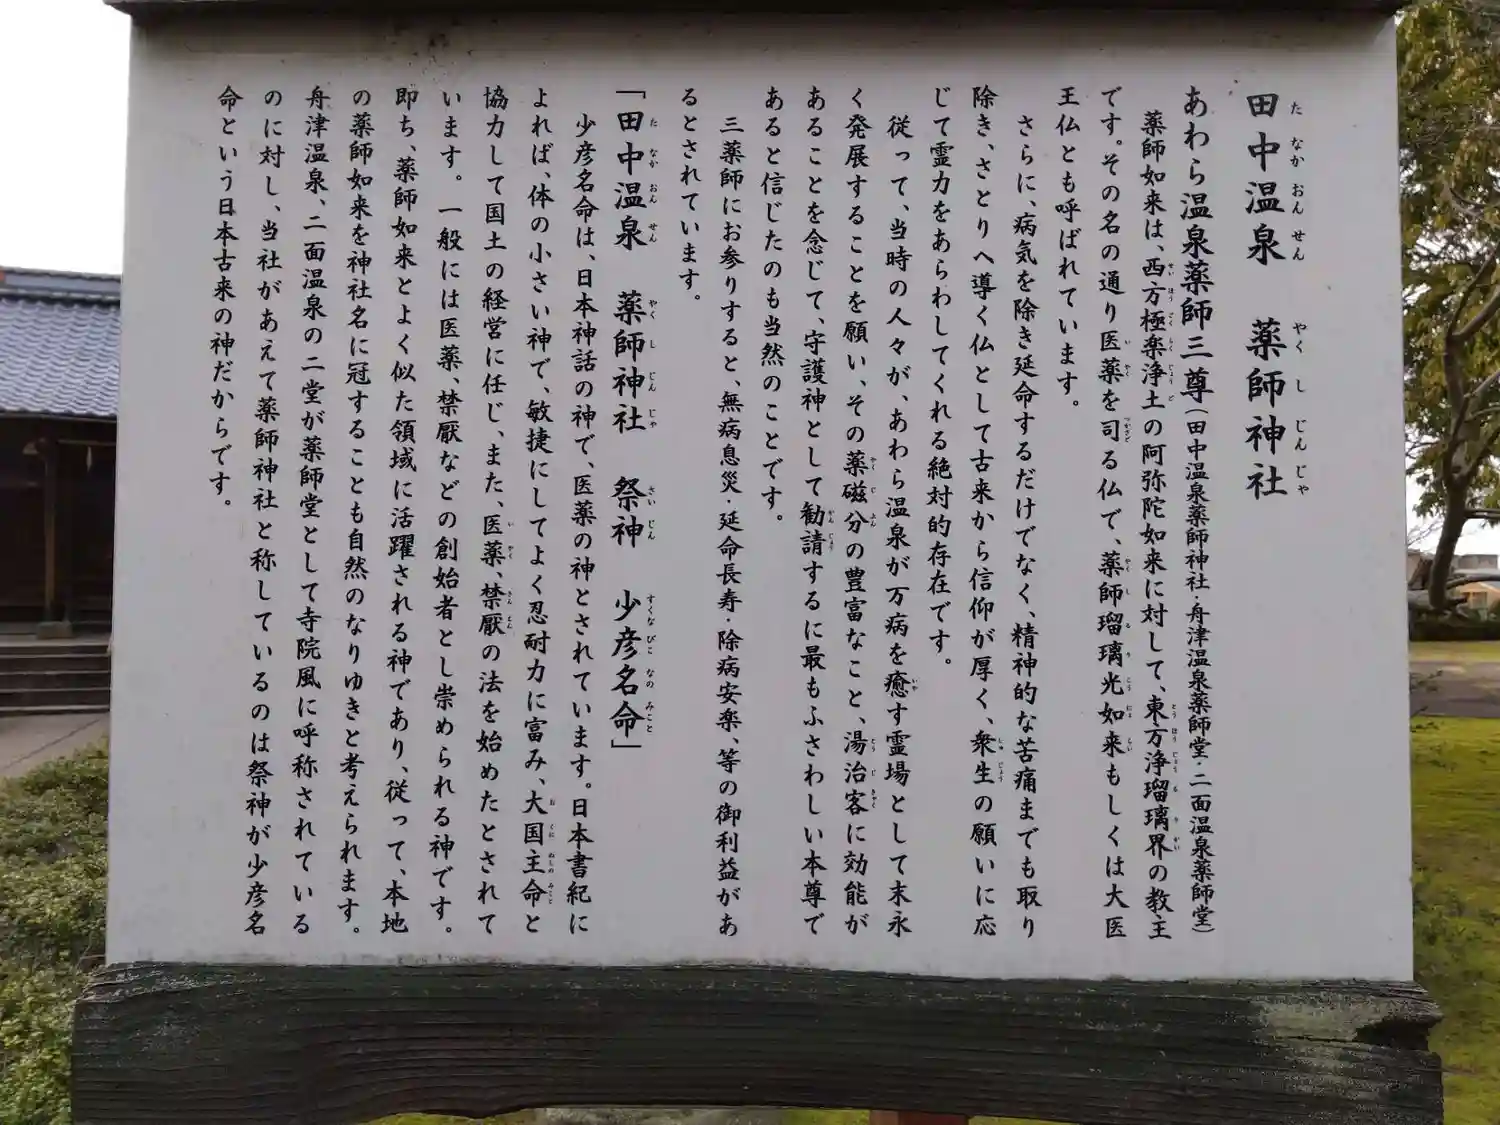 田中温泉　薬師神社
あわら温泉薬師三尊（田中温泉薬師神社・舟津温泉薬師堂・二面温泉薬師堂）
薬師如来は、西方極楽浄土の阿弥陀如来に対して、東方浄瑠璃界の教主
です。その名の通り医薬を司る仏で、薬師瑠璃光如来もしくは大医
王仏とも呼ばれています。
さらに、病気を除き延命するだけでなく、精神的な苦痛までも取り
除き、さとりへ導く仏として古来から信仰が厚く、衆生の願いに応
じて霊力をあらわしてくれる絶対的存在です。
従って、当時の人々が、あわら温泉が万病を癒す霊場として末永
く発展することを願い、その薬磁分の豊富なこと、湯治客に効能が
あることを念じて、守護神として勧請するに最もふさわしい本尊で
あると信じたのも当然のことです。
三薬師にお参りすると、無病息災・延命長寿・除病安楽、等の御利益があ
るとされています。
「田中温泉　薬師神社　祭神　少彦名命」
少彦名命は、日本神話の神で、医薬の神とされています。日本書紀に
よれば、体の小さい神で、敏捷にしてよく忍耐力に富み、大国主命と
協力して国土の経営に任じ、また、医薬、禁厭の法を始めたとされて
います。一般には医薬、禁厭などの創始者とし崇められる神です。
即ち、薬師如来とよく似た領域に活躍される神であり、従って、本地
の薬師如来を神社名に冠することも自然のなりゆきと考えられます。
舟津温泉、二面温泉の二堂が薬師堂として寺院風に呼称されている
のに対し、当社があえて薬師神社と称しているのは祭神が少彦名
命という日本古来の神だからです。